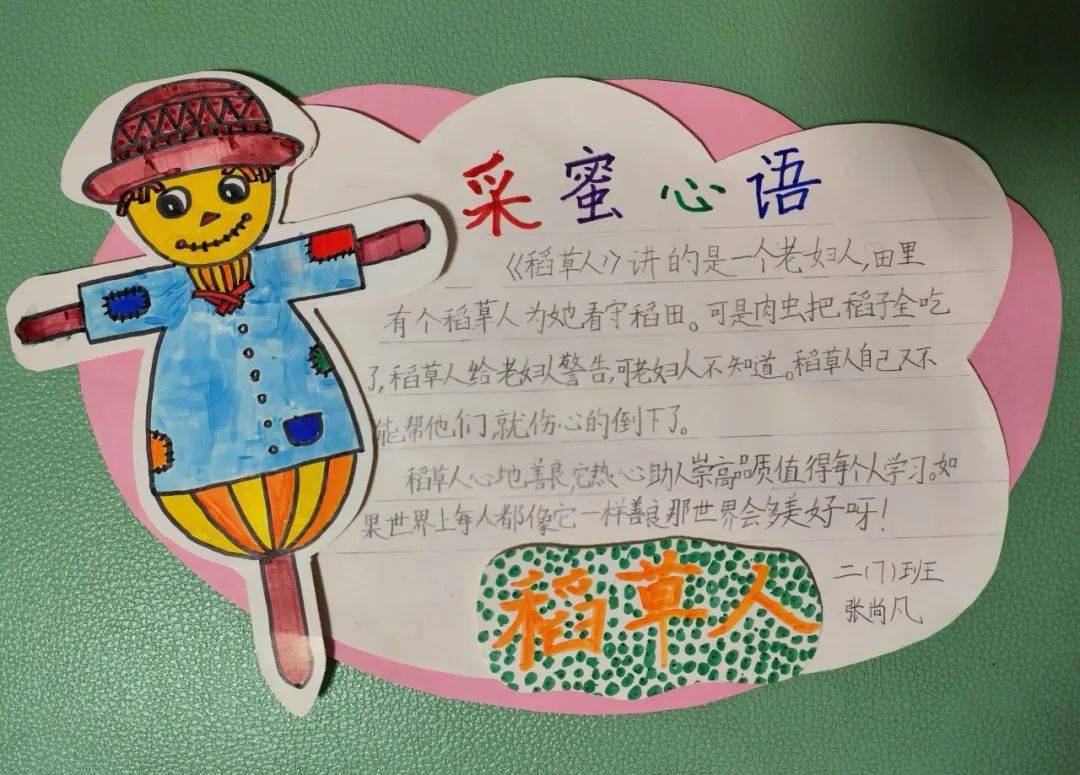 采蜜心语
《稻草人》讲的是一个老妇人,田里
有个稻草人为她看守稻田。可是肉虫把稻子全吃
了,稻草人给老妇人警告,可老妇人不知道。稻草人自己又不
能帮他们,就伤心的倒下了。
稻草人心地善良,它热心助人崇高品质值得每个人学习。如
果世界上每人都像它一样善良那世界会多美好呀!
稻草人
二(7)班
张尚凡